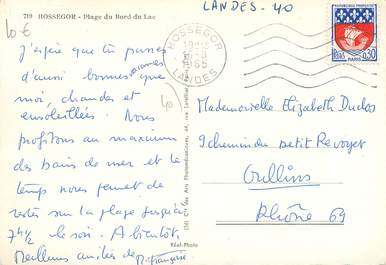 LANDES. 40
10€
719 HOSSEGOR - Plage du Bord du Lac
HOSSEGOR
1965
LANDES
REPUBLIQUE FRANÇAISE
POSTES
0,30
PARIS
J'espère que tu passes
d'aussi bonnes vacances que
moi, chaudes et
ensoleillées. Nous
profitons au maximum
des bains de mer et le
temps nous permet de
rester sur la plage jusqu'à
7h 1/2 le soir. A bientôt,
Meilleures amitiés de M. Françoise
40
Mademoiselle Elizabeth Duclos
9 chemin du petit Revoyet
Oullins
Rhône 69
Réel-Photo